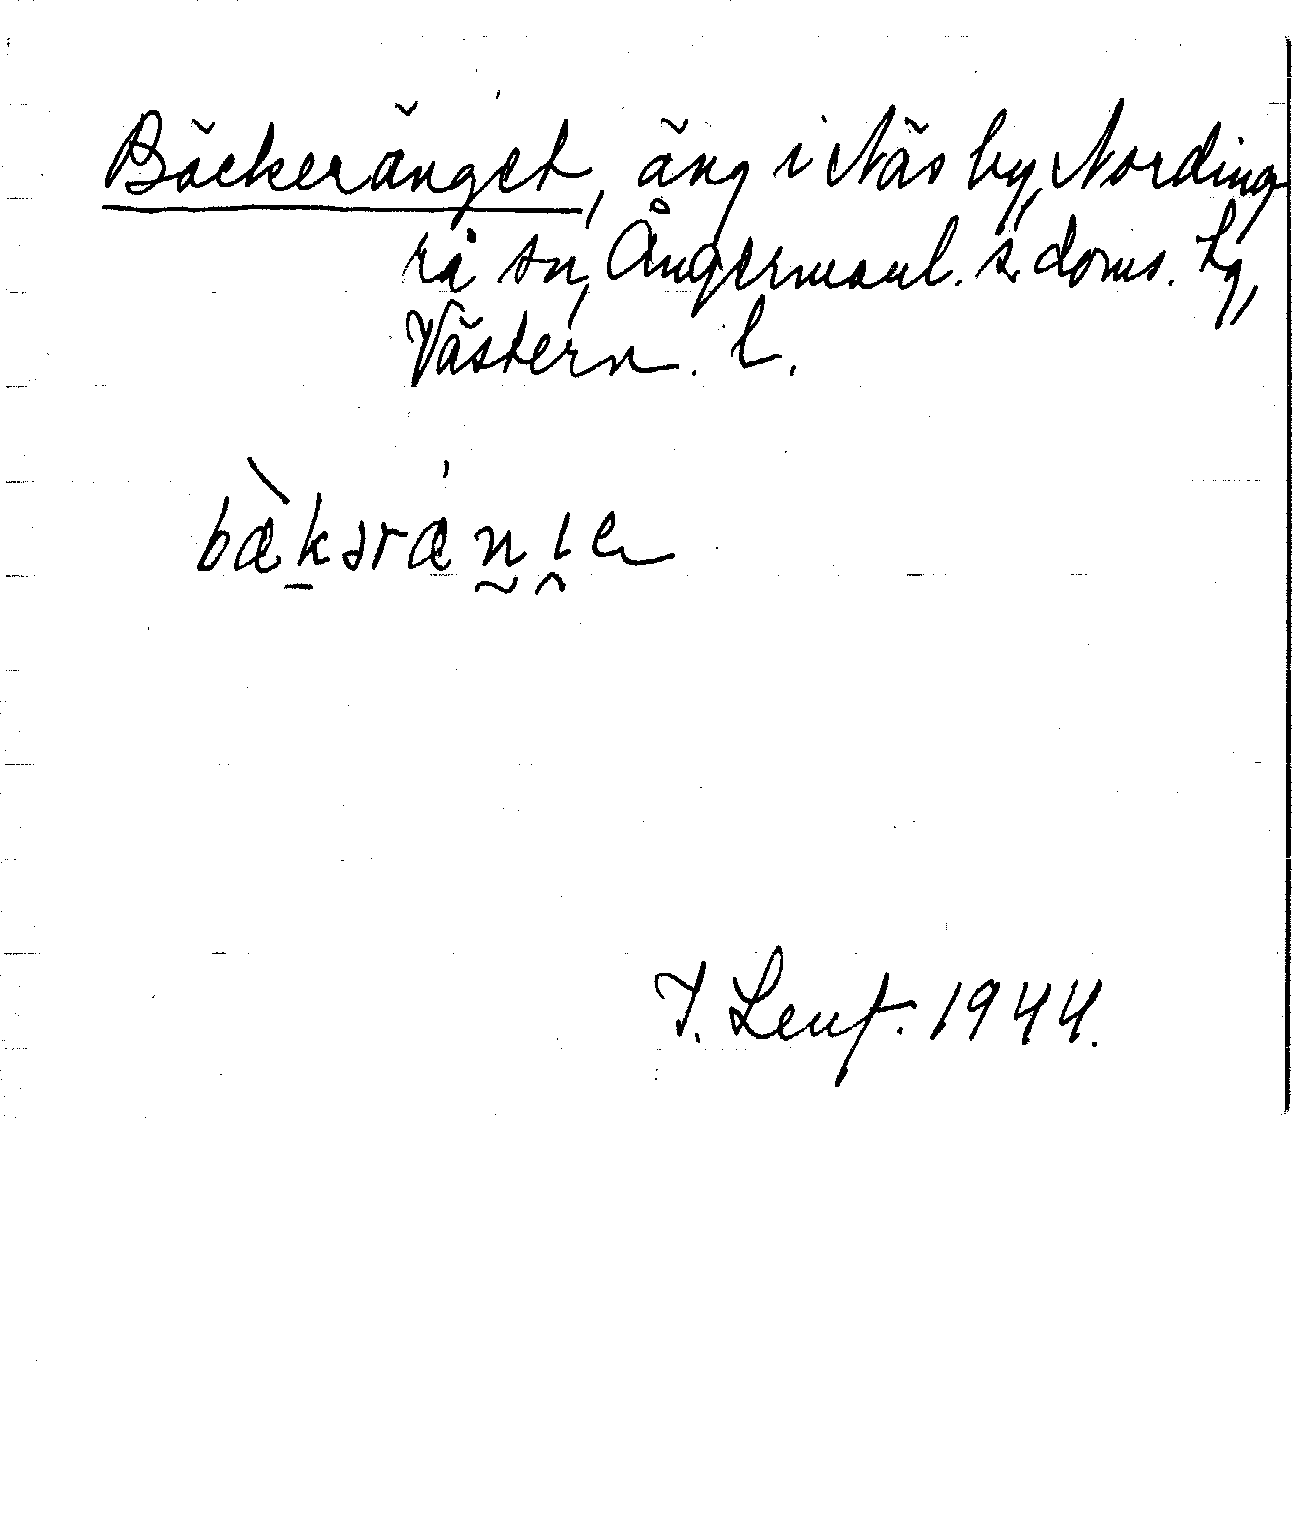 Bäckeränget, äng i Näs by, Nording
rå sn, Ångermanl. s. doms. hg,
Västern. l.
bæ̀kəræ̀n̰ɩe
J. Lenf. 1944.